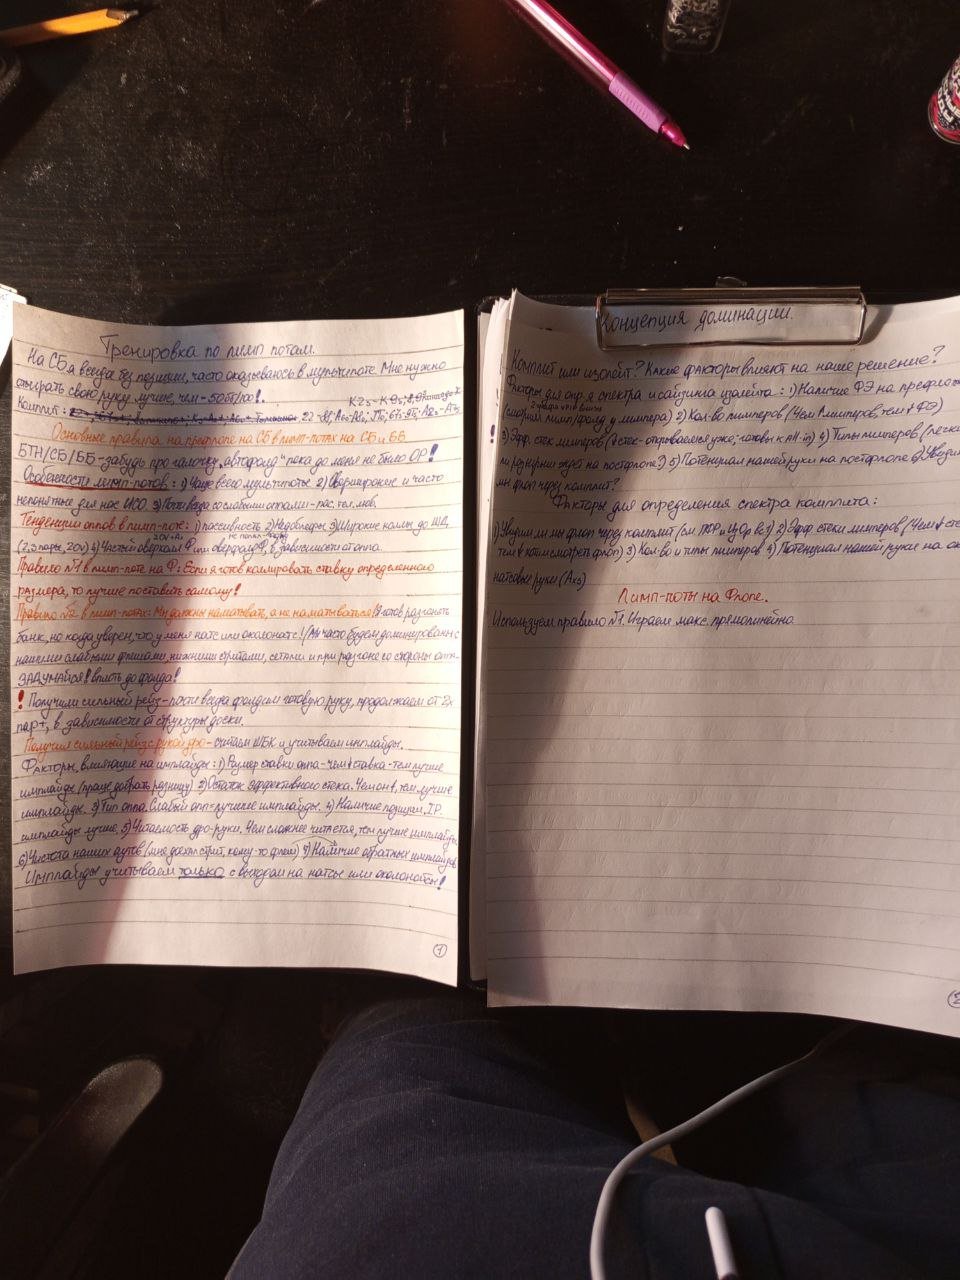 Тренировка по лимп потам.
На СБ я всегда без позиции, часто оказываюсь в мультипоте. Мне нужно
отыграть свою руку лучше, чем -50бб/100!
K2s-K9s,
Комплит: 22
Основные правила на префлопе на СБ в лимп-потах на СБ и ББ
БТН/СБ/ББ-забудь про галочку „автофолд" пока до меня не было ОР!
Особенности лимп-потов.: 1) Чаще всего мультипоты. 2) Сверширокие и часто
непонятные для нас ИСО. 3) Почти всегда со слабыми оппами-пас. тел. мов.
Тенденции оппов в лимп-поте: 1) пассивность 2) Недоблефы. 3) Широкие коллы до ШД,
(2,3 пары, ) 4) Частый оверколл Ф или оверфолд Ф, в зависимости от оппа.
Правило №1 в лимп-поте на Ф: Если я готов коллировать ставку определенного
размера, то лучше поставить самому!
Правило №2 в лимп-потах: Мы должны наматывать, а не наматываться! Я готов разгонять
банк, но когда уверен, что у меня натс или околонатс! (Мы часто будем доминированы с
нашими слабыми флешами, нижними стритами, сетами и при разгоне со стороны оппа-
ЗАДУМАЙСЯ! вплоть до фолда!
! Получили сильный рейз-почти всегда фолдим готовую руку, продолжаем от 2х
пар+, в зависимости от структуры доски.
Получил сильный рейз с рукой дро-считаем ШБК и учитываем имплайды.
Факторы, влияющие на имплайды: 1) Размер ставки оппа-чем ↓ ставка-тем лучше
имплайды (проще добрать разницу) 2) Остаток эффективного стека. Чем он ↑, тем лучше
имплайды. 3) Тип оппа. Слабый опп=лучшие имплайды. 4) Наличие позиции. IP
имплайды лучше. 5) Читаемость дро-руки. Чем сложнее читается, тем лучше имплайды
6) Чистота наших аутов (мне доехал стрит, кому-то флеш) 7) Наличие обратных имплайдов
Имплайды учитываем только с выходом на натсы или околонатсы!
1
Концепция доминации.
Комплит или изолейт? Какие факторы влияют на наше решение?
Факторы для опр-я спектра и сайзинга изолейта: 1) Наличие ФЭ на префлопе
(смотрим лимп/фолд у лимпера) 2) Кол-во лимперов (Чем ↑ лимперов, тем ↓ ФЭ)
! 3) Эфф. стек лимперов (↓ стек-открываемся уже; готовы к All-in) 4) Типы лимперов (легки
ли розыгрыш ждет на постфлопе?) 5) Потенциал нашей руки на постфлопе 6) Увидим
мы флоп через комплит?
Факторы для определения спектра комплита:
1) Увидим ли мы флоп через комплит (см. PFR 2) Эфф стеки лимперов (Чем ↓ стек
тем ↓ хотим смотреть флоп) 3) Кол-во и типы лимперов 4) Потенциал нашей руки на
натсовые руки (Axs)
Лимп-поты на Флопе.
Используем правило №1. Играем макс. прямолинейно.
2